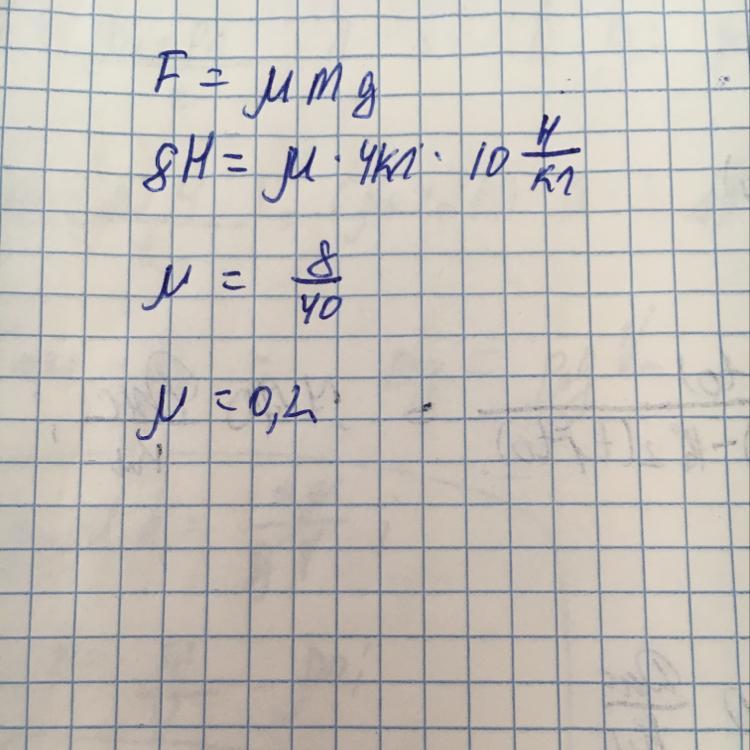 F = μmg
8Н = μ · 4кг · 10 Н/кг
μ = 8/40
μ = 0,2